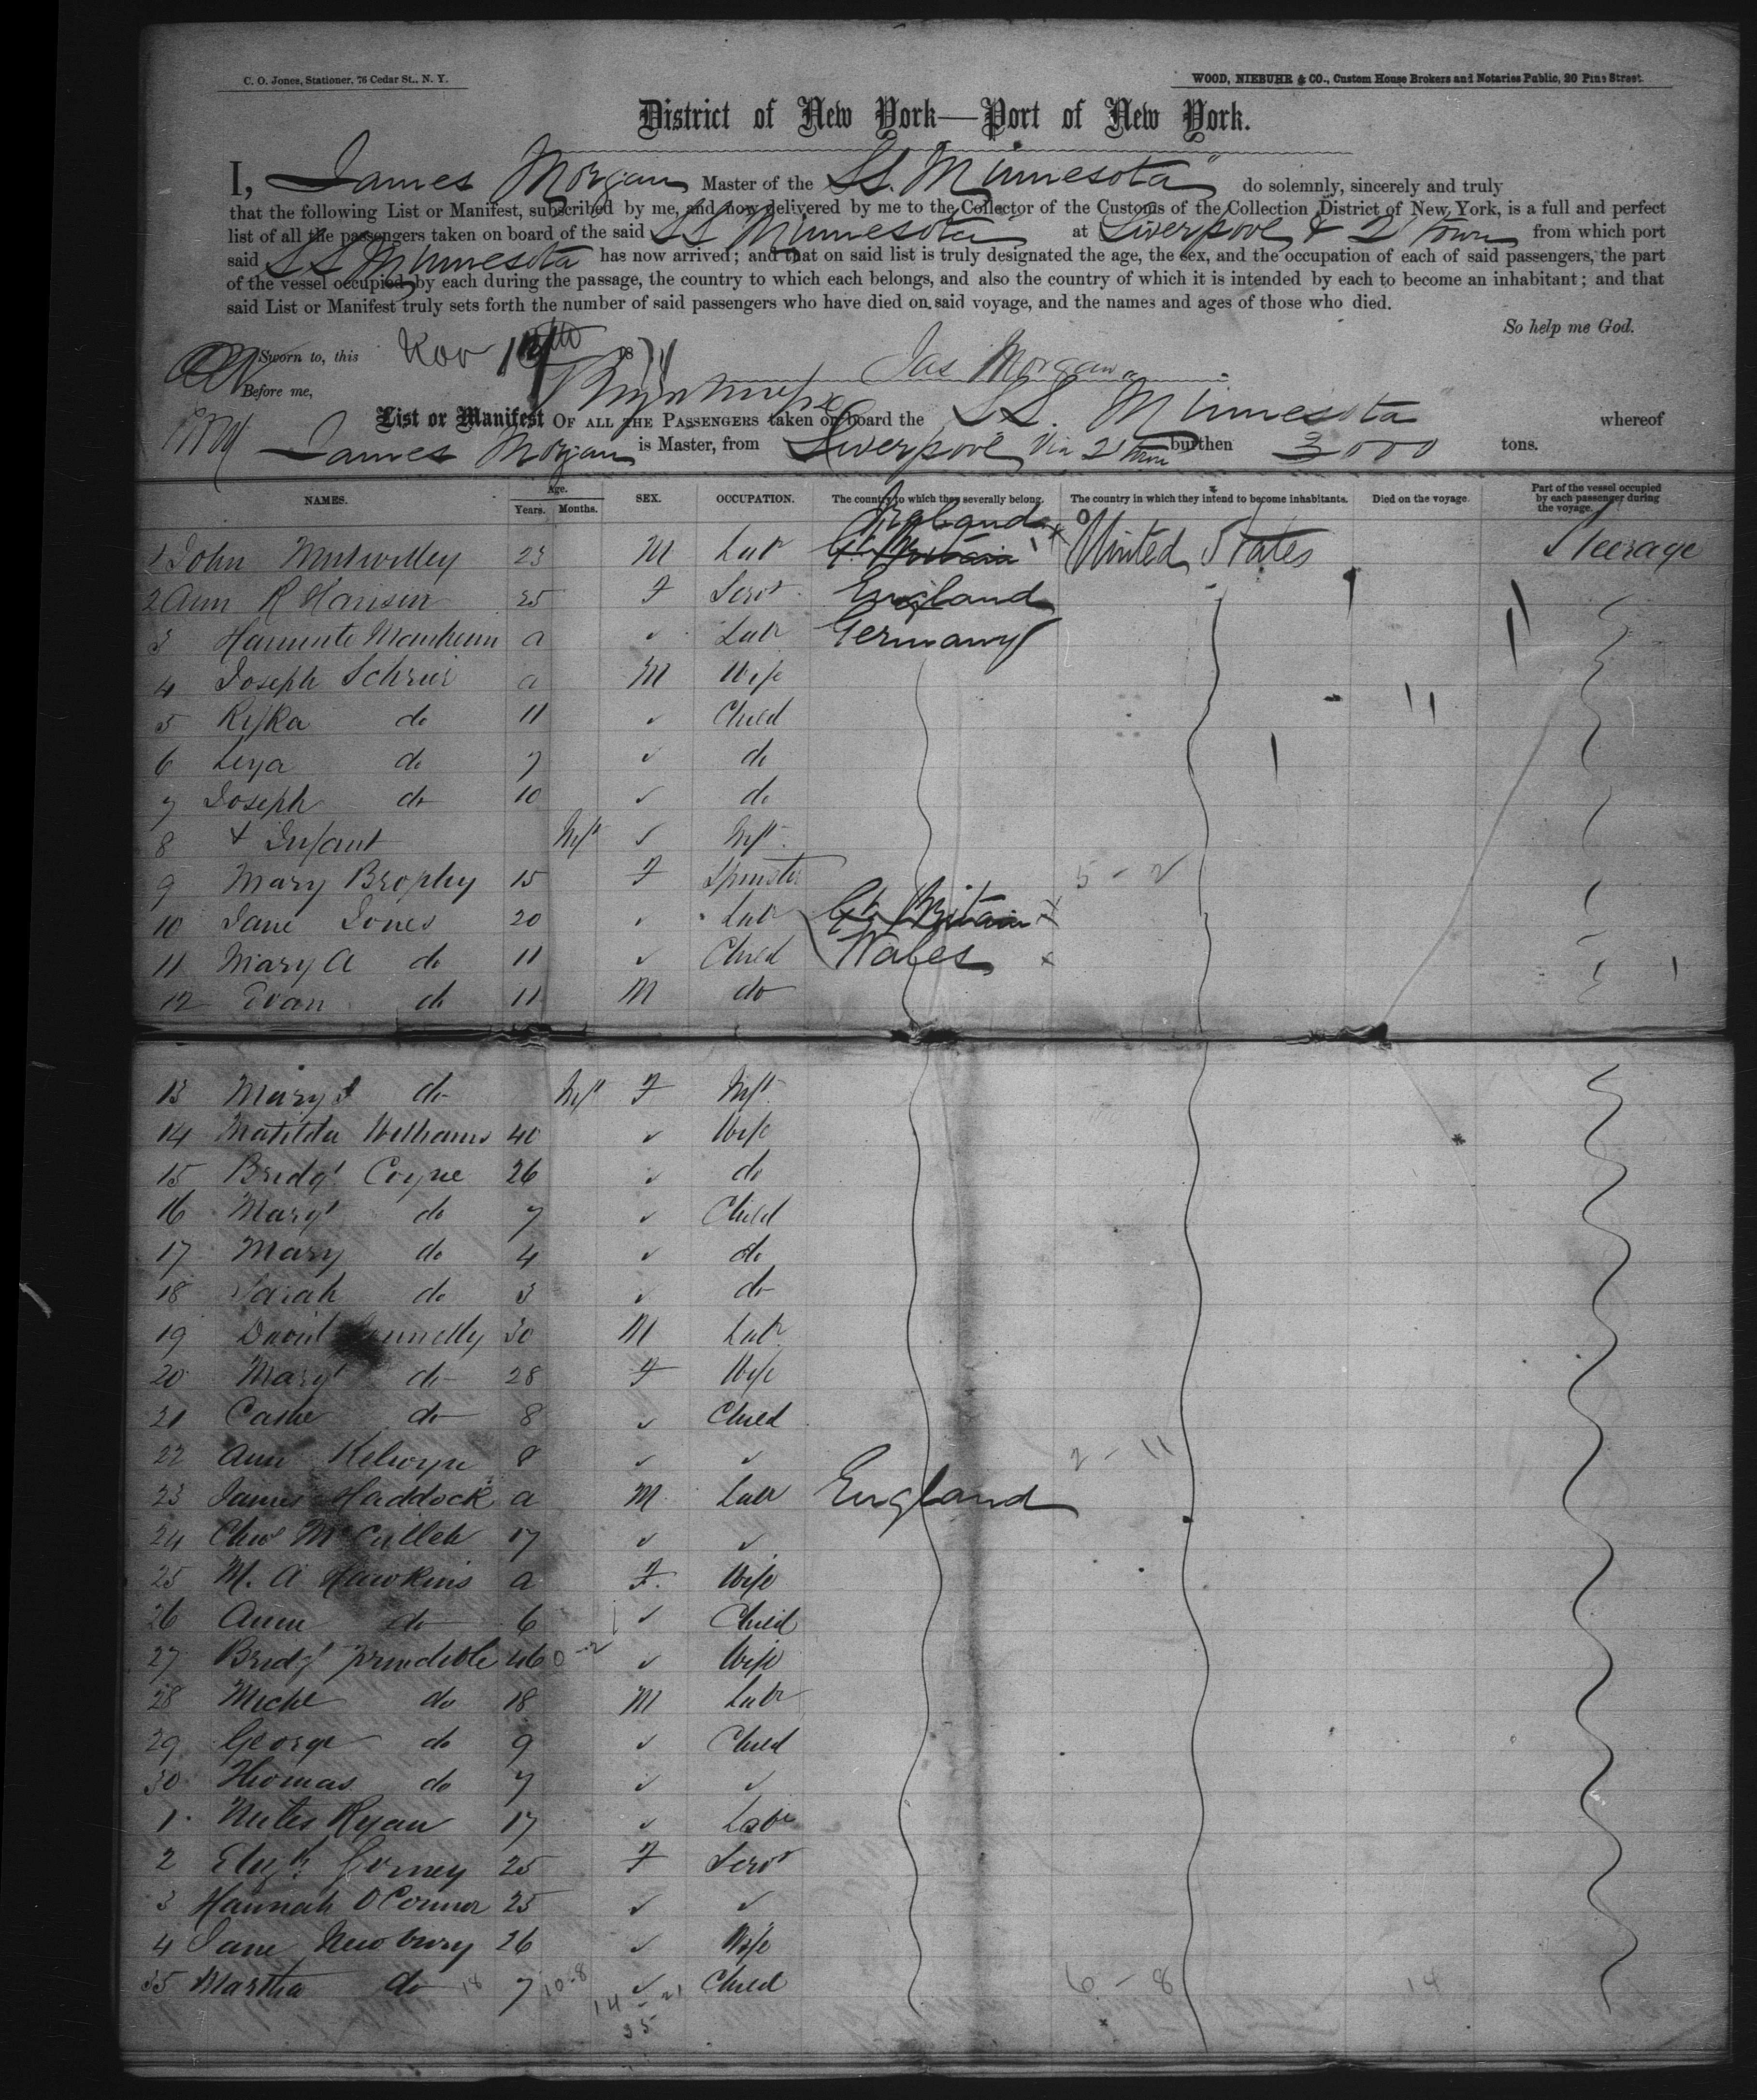 C. O. Jones, Stationer, 76 Cedar St., N. Y.
WOOD, NIEBUHR & CO., Custom House Brokers and Notaries Public, 20 Pine Street.
District of New York—Port of New York.
I, James Morgan Master of the SS. Minnesota do solemnly, sincerely and truly
that the following List or Manifest, subscribed by me, and now delivered by me to the Collector of the Customs of the Collection District of New York, is a full and perfect
list of all the passengers taken on board of the said SS Minnesota at Liverpool & 2 Town from which port
said SS Minnesota has now arrived; and that on said list is truly designated the age, the sex, and the occupation of each of said passengers, the part
of the vessel occupied by each during the passage, the country to which each belongs, and also the country of which it is intended by each to become an inhabitant; and that
said List or Manifest truly sets forth the number of said passengers who have died on said voyage, and the names and ages of those who died.
So help me God.
Sworn to, this Nov 18
Jas Morgan
Before me,
List or Manifest OF ALL THE PASSENGERS taken on board the SS. Minnesota whereof
James Morgan is Master, from Liverpool Via 2 Town burthen 3000 tons.
NAMES. Age. Years. Months. SEX. OCCUPATION. The country to which they severally belong. The country in which they intend to become inhabitants. Died on the voyage. Part of the vessel occupied by each passenger during the voyage.
1 John 23 M Labr Gt. Britain United States Steerage
2 Ann R Harison 25 F Servt England
3 Manheim a ✓ Labr Germany
4 Joseph Schrier a M Wife
5 Rifka do 11 ✓ Child
6 Leya do 7 ✓ do
7 Joseph do 10 ✓ do
8 + Infant Inft ✓ Inft
9 Mary Brophy 15 F Spinster 5 - 2
10 Jane Jones 20 ✓ Labr Gt. Britain
11 Mary A do 11 ✓ Child Wales
12 Evan do 11 M do
13 Mary J do Inft F Inft.
14 Matilda Williams 40 ✓ Wife
15 Bridgt Coyne 26 ✓ do
16 Margt do 7 ✓ Child
17 Mary do 4 ✓ do
18 Sarah do 3 ✓ do
19 David 30 M Labr
20 Margt do 28 F Wife
21 Cathe do 8 ✓ Child
22 Ann 8 ✓ ✓ 2 - 11
23 James Haddock a M Labr England
24 Chas McCulleh 17 ✓ ✓
25 M. A Hawkins a F. Wife
26 Ann do 6 ✓ Child
27 Bridgt Prindible 46 0-2 ✓ Wife
28 Michl do 18 M Labr
29 George do 9 ✓ Child
30 Thomas do 7 ✓ ✓
1 Ryan 17 ✓ Labr
2 Elizth 25 F Servt
3 Hannah O'Connor 25 ✓ ✓
4 Jane Newbury 26 ✓ Wife
35 Martha do 18 7 10-8 ✓ Child 6 - 8 14
14 - 21
35